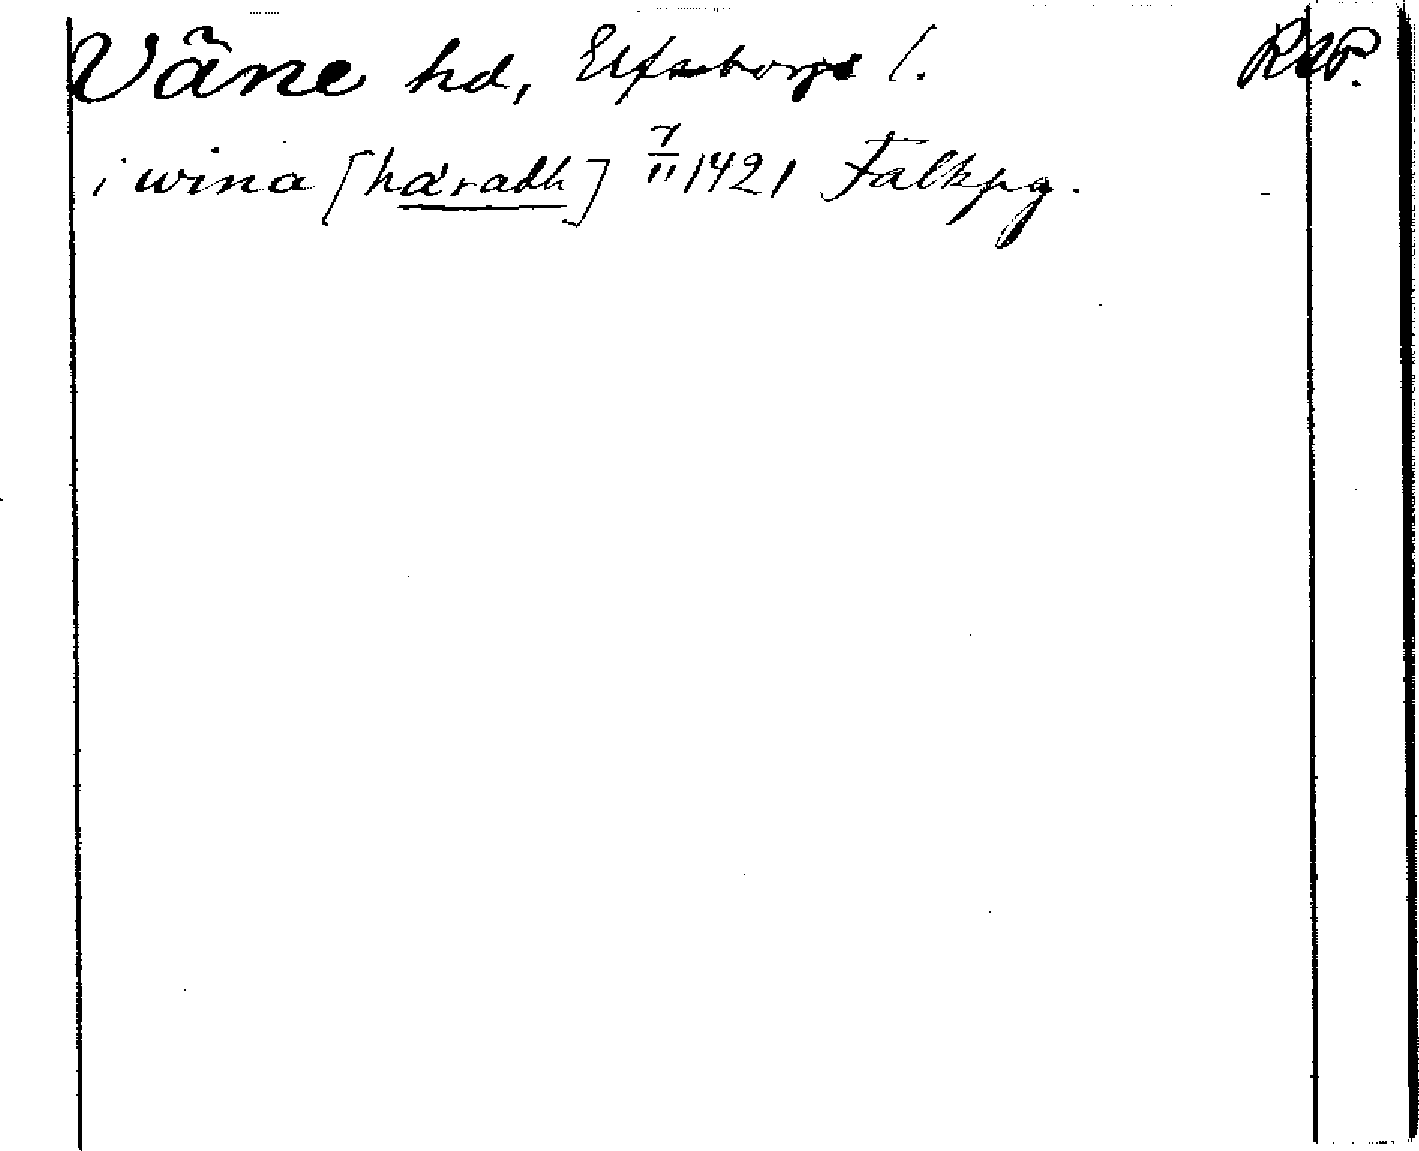 Väne hd, Elfsborgs l. RAP.
i wina [häradh] 7/11 1421 Falkpg.